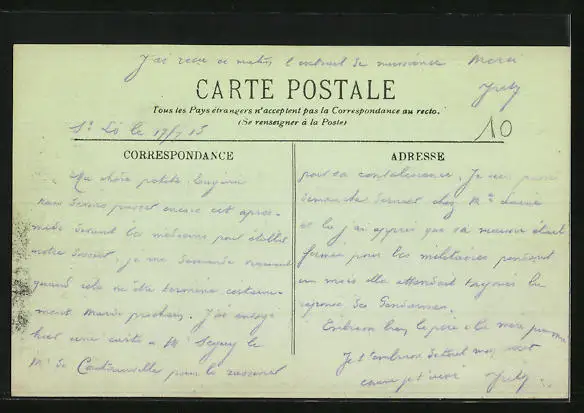 J'ai reçu ce matin l'extrait de naissance Merci
CARTE POSTALE
Tous les Pays étrangers n'acceptent pas la Correspondance au recto.
(Se renseigner à la Poste)
St Lô le 17/7 15
10
CORRESPONDANCE
Ma chère petite Eugénie
Nous passer encore cet apres-
midi devant les médecins pour établir
notre dossier, je me demande vraiment
quand cela va être terminé certaine-
ment mardi prochain. J'ai envoyé
hier une carte a Mr le
Mr de pour le
ADRESSE
pour sa convalescence. Je suis passé
dimanche dernier chez Mme
et la j'ai appris que sa maison était
fermée pour les militaires pendant
un mois elle attendait toujours la
réponse des Gendarmes.
Embrasse bien le père et la mère pour moi
Je t'embrasse de tout mon
comme je t'aime